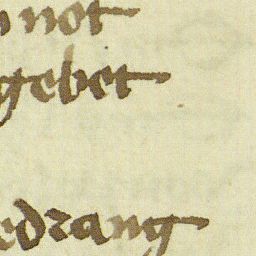 not
gebet
edrang